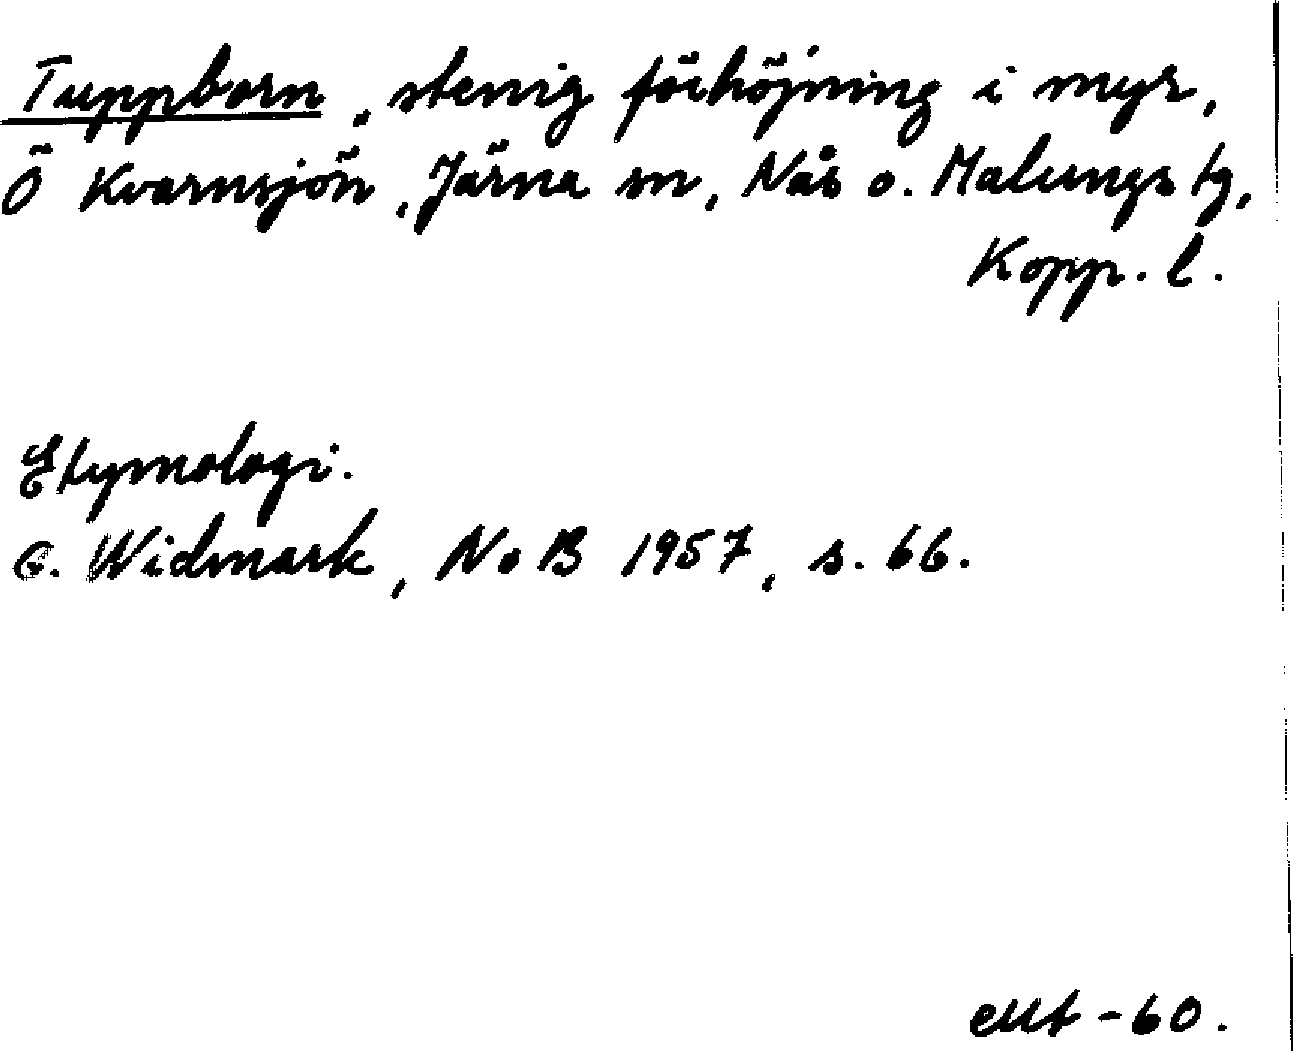 Tuppborn, stenig förhöjning i myr,
Ö Kvarnsjön, Järna sn, Nås o. Malungs tg,
Kopp. l.
Etymologi.
G. Widmark, NoB 1957, s. 66.
-60.